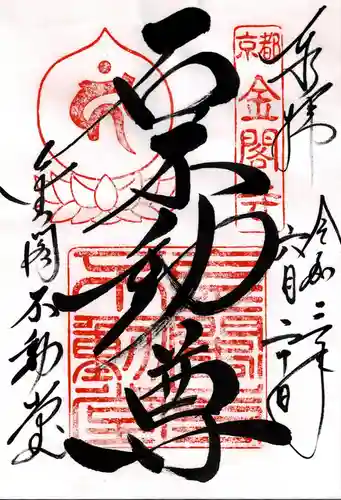 奉拝
令和二年
六月二十日
京都
金閣寺
石不動尊
金閣不動堂